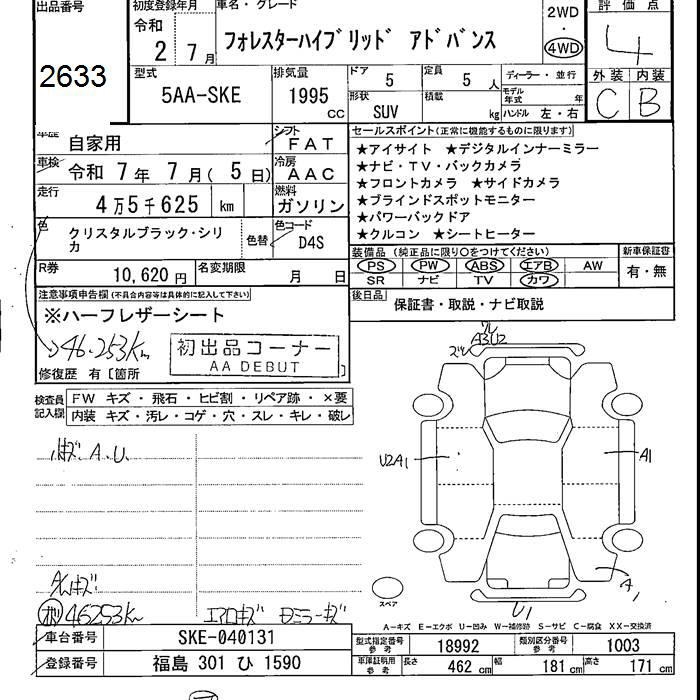 出品番号
2633
初度登録年月
令和
2 年 7 月
車名・グレード
フォレスターハイブリッド アドバンス
2WD
・
4WD
評価点
4
外装 内装
C B
型式
5AA-SKE
排気量
1995 cc
ドア
5
定員
5 人
形状
SUV
積載
kg
ディーラー・並行
モデル年式 年
ハンドル 左・右
車歴
自家用
シフト
FAT
車検
令和 7 年 7 月 ( 5 日)
冷房
AAC
走行
4万5千625 km
燃料
ガソリン
色
クリスタルブラック・シリカ
色替
色コード
D4S
R券
10,620 円
名変期限
月 日
セールスポイント(正常に機能するものに限ります)
★アイサイト ★デジタルインナーミラー
★ナビ・TV・バックカメラ
★フロントカメラ ★サイドカメラ
★ブラインドスポットモニター
★パワーバックドア
★クルコン ★シートヒーター
装備品 (純正品に限り○をつけてください)
PS PW ABS エアB AW
SR ナビ TV カワ
新車保証書
有・無
後日品
保証書・取説・ナビ取説
注意事項申告欄(不具合内容等は具体的に記入して下さい)
※ハーフレザーシート
46.253Km
初出品コーナー
AA DEBUT
修復歴 有〔箇所
検査員記入欄
FW キズ・飛石・ヒビ割・リペア跡・×要
内装 キズ・汚レ・コゲ・穴・スレ・キレ・破レ
A.U.
46253Km
エアロキズ
A3U2
U2A1
A1
A1
U1
スペア
A-キズ E-エクボ U-凹み W-補修跡 S-サビ C-腐食 XX-交換済
車台番号
SKE-040131
登録番号
福島 301 ひ 1590
型式指定番号 参考
18992
類別区分番号 参考
1003
車庫証明用 参考
長さ 462 cm
幅 181 cm
高さ 171 cm